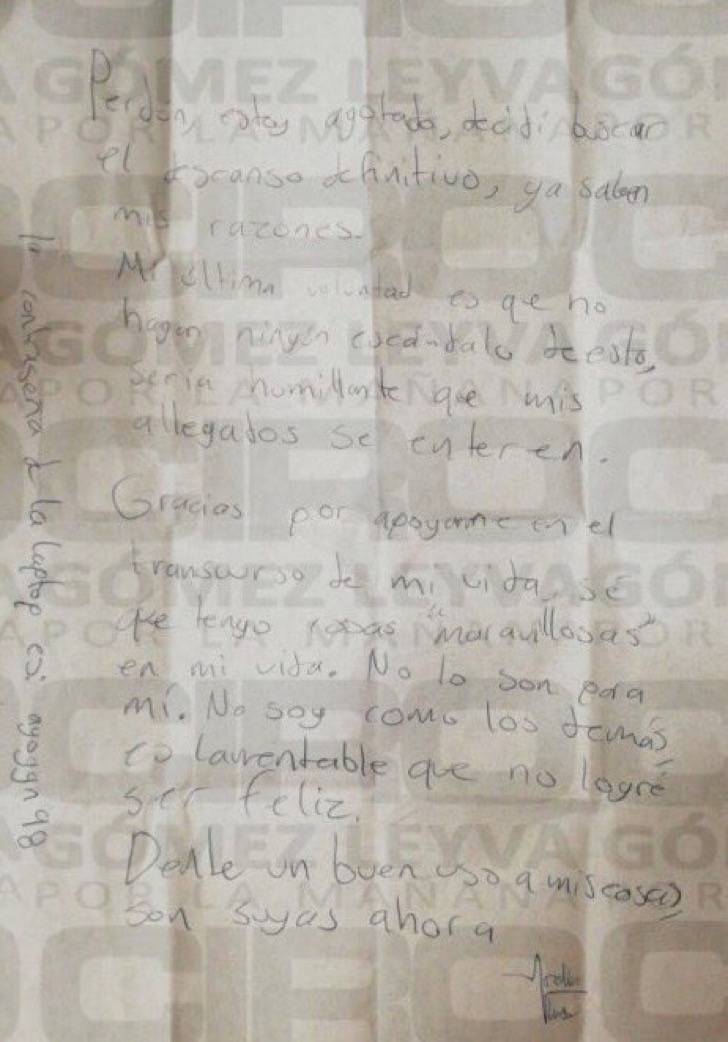 Perdón, estoy agotado, decidí buscar
el descanso definitivo, ya saben
mis razones.
Mi última voluntad es que no
hagan ningún escándalo de esto,
sería humillante que mis
allegados se enteren.
Gracias por apoyarme en el
transcurso de mi vida, sé
que tengo cosas "maravillosas"
en mi vida. No lo son para
mí. No soy como los demás,
es lamentable que no logré
ser feliz.
Denle un buen uso a mis cosas,
son suyas ahora
la contraseña d la laptop es:
CIRO
GÓMEZ LEYVA
POR LA MAÑANA